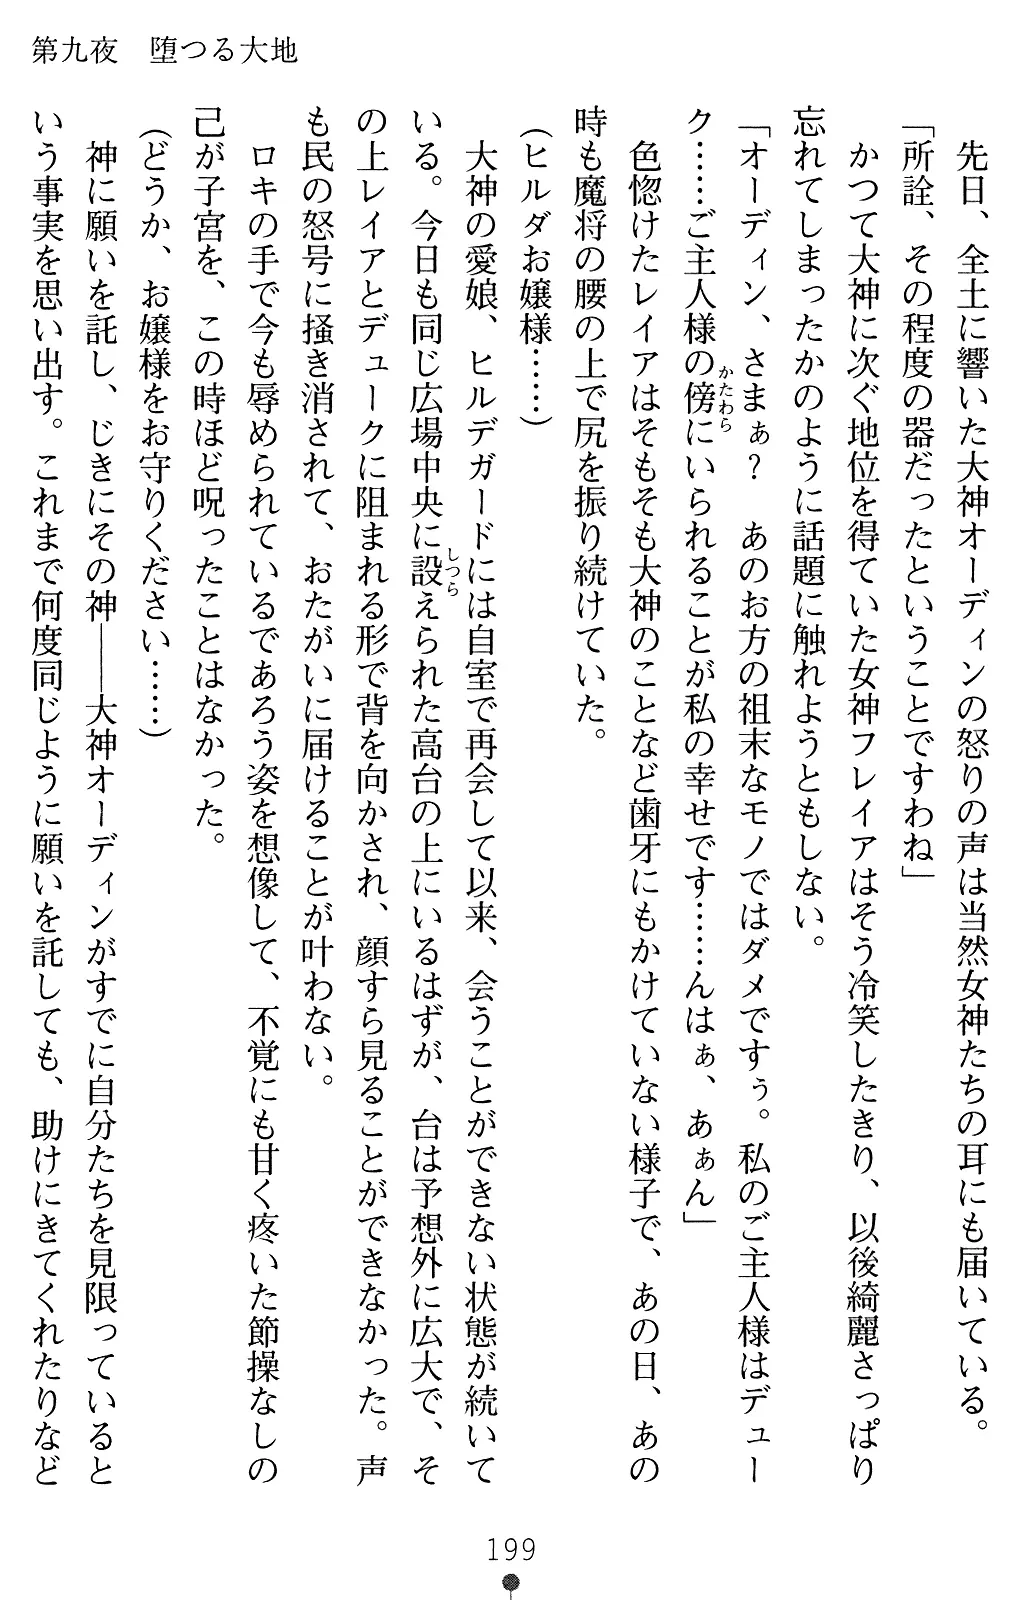 第九夜　堕つる大地
先日、全土に響いた大神オーディンの怒りの声は当然女神たちの耳にも届いている。
「所詮、その程度の器だったということですわね」
かつて大神に次ぐ地位を得ていた女神フレイアはそう冷笑したきり、以後綺麗さっぱり
忘れてしまったかのように話題に触れようともしない。
「オーディン、さまぁ？　あのお方の祖末なモノではダメですぅ。私のご主人様はデュー
ク……ご主人様の傍にいられることが私の幸せです……んはぁ、あぁん」
かたわら
色惚けたレイアはそもそも大神のことなど歯牙にもかけていない様子で、あの日、あの
時も魔将の腰の上で尻を振り続けていた。
（ヒルダお嬢様……）
大神の愛娘、ヒルデガードには自室で再会して以来、会うことができない状態が続いて
いる。今日も同じ広場中央に設えられた高台の上にいるはずが、台は予想外に広大で、そ
しつら
の上レイアとデュークに阻まれる形で背を向かされ、顔すら見ることができなかった。声
も民の怒号に掻き消されて、おたがいに届けることが叶わない。
ロキの手で今も辱められているであろう姿を想像して、不覚にも甘く疼いた節操なしの
己が子宮を、この時ほど呪ったことはなかった。
（どうか、お嬢様をお守りください……）
神に願いを託し、じきにその神――大神オーディンがすでに自分たちを見限っていると
いう事実を思い出す。これまで何度同じように願いを託しても、助けにきてくれたりなど
199